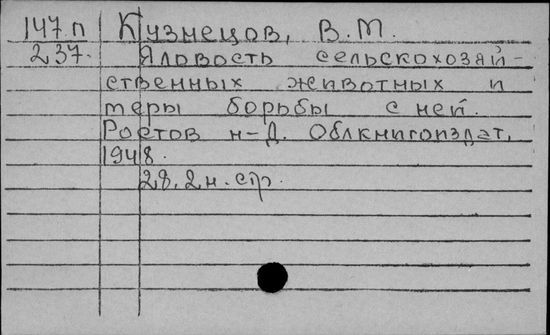 147.п Кузнецов, В.М.
237. Яловость сельскохозяй-
ственных животных и
меры борьбы с ней.
Ростов н-Д. Облкнигоиздат,
1948.
28, 2 н. стр.